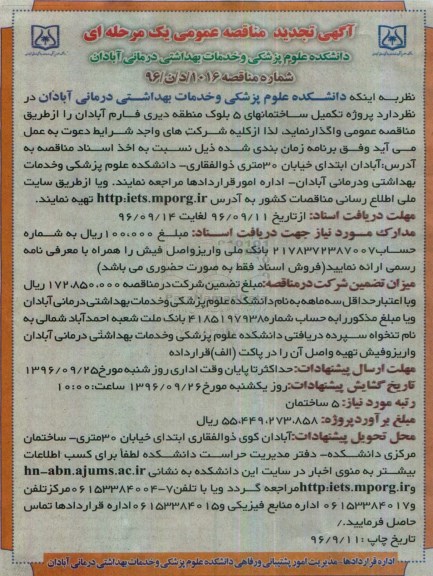 آگهی تجدید مناقصه عمومی یک مرحله ای
دانشکده علوم پزشکی وخدمات بهداشتی درمانی آبادان
شماره مناقصه ۱۰۱۶/د/ن/۹۶
نظربه اینکه دانشکده علوم پزشکی وخدمات بهداشتی درمانی آبادان در
نظردارد پروژه تکمیل ساختمانهای ۵ بلوک منطقه دیری فارم آبادان را ازطریق
مناقصه عمومی واگذارنماید، لذا ازکلیه شرکت های واجد شرایط دعوت به عمل
می آید وفق برنامه زمان بندی شده ذیل نسبت به اخذ اسناد مناقصه به
آدرس:آبادان ابتدای خیابان ۳۰متری ذوالفقاری- دانشکده علوم پزشکی وخدمات
بهداشتی ودرمانی آبادان- اداره امورقراردادها مراجعه نمایند. ویا ازطریق سایت
ملی اطلاع رسانی مناقصات کشور به آدرس http:iets.mporg.ir تهیه نمایند.
مهلت دریافت اسناد: ازتاریخ ۹۶/۰۹/۱۱ لغایت ۹۶/۰۹/۱۴
مدارک مورد نیاز جهت دریافت اسناد: مبلغ ۱۰۰،۰۰۰ریال به شماره
حساب۲۱۷۸۳۷۲۳۸۷۰۰۷ بانک ملی واریزواصل فیش را همراه با معرفی نامه
رسمی ارائه نمایید(فروش اسناد فقط به صورت حضوری می باشد)
میزان تضمین شرکت درمناقصه:مبلغ تضمین شرکت درمناقصه ۱۷۲،۸۵۰،۰۰۰ ریال
وبا اعتبارحداقل سه ماهه به نام دانشکده علوم پزشکی وخدمات بهداشتی درمانی آبادان
ویا مبلغ مذکوررابه حساب شماره ۴۱۸۵۱۹۷۹۳۸ بانک ملت شعبه احمدآباد شمالی به
نام تنخواه سپرده دریافتی دانشکده علوم پزشکی وخدمات بهداشتی درمانی آبادان
واریزوفیش تهیه واصل آن را در پاکت (الف)قرارداده
مهلت ارسال پیشنهادات:حداکثرتا پایان وقت اداری روز شنبه مورخ۱۳۹۶/۰۹/۲۵
تاریخ گشایش پیشنهادات:روز یکشنبه مورخ۱۳۹۶/۰۹/۲۶ ساعت:۱۰:۰۰
رتبه مورد نیاز: ۵ ساختمان
مبلغ برآوردپروژه: ۵۵،۴۴۹،۲۷۳،۸۵۸ ریال
محل تحویل پیشنهادات:آبادان کوی ذوالفقاری ابتدای خیابان ۳۰متری- ساختمان
مرکزی دانشکده- دفتر مدیریت حراست دانشکده لطفاً برای کسب اطلاعات
بیشتر به منوی اخبار در سایت این دانشکده به نشانی hn-abn.ajums.ac.ir
وhttp:iets.mporg.irمراجعه گردد ویا با تلفن۷-۰۶۱۵۳۳۸۴۰۰۴مرکزتلفن
و۰۶۱۵۳۳۸۴۰۱۷ اداره منابع فیزیکی و۰۶۱۵۳۳۸۴۰۱۵اداره قراردادها تماس
حاصل فرمایید./
تاریخ چاپ :۹۶/۹/۱۱
اداره قراردادها- مدیریت امور پشتیبانی ورفاهی دانشکده علوم پزشکی وخدمات بهداشتی درمانی آبادان